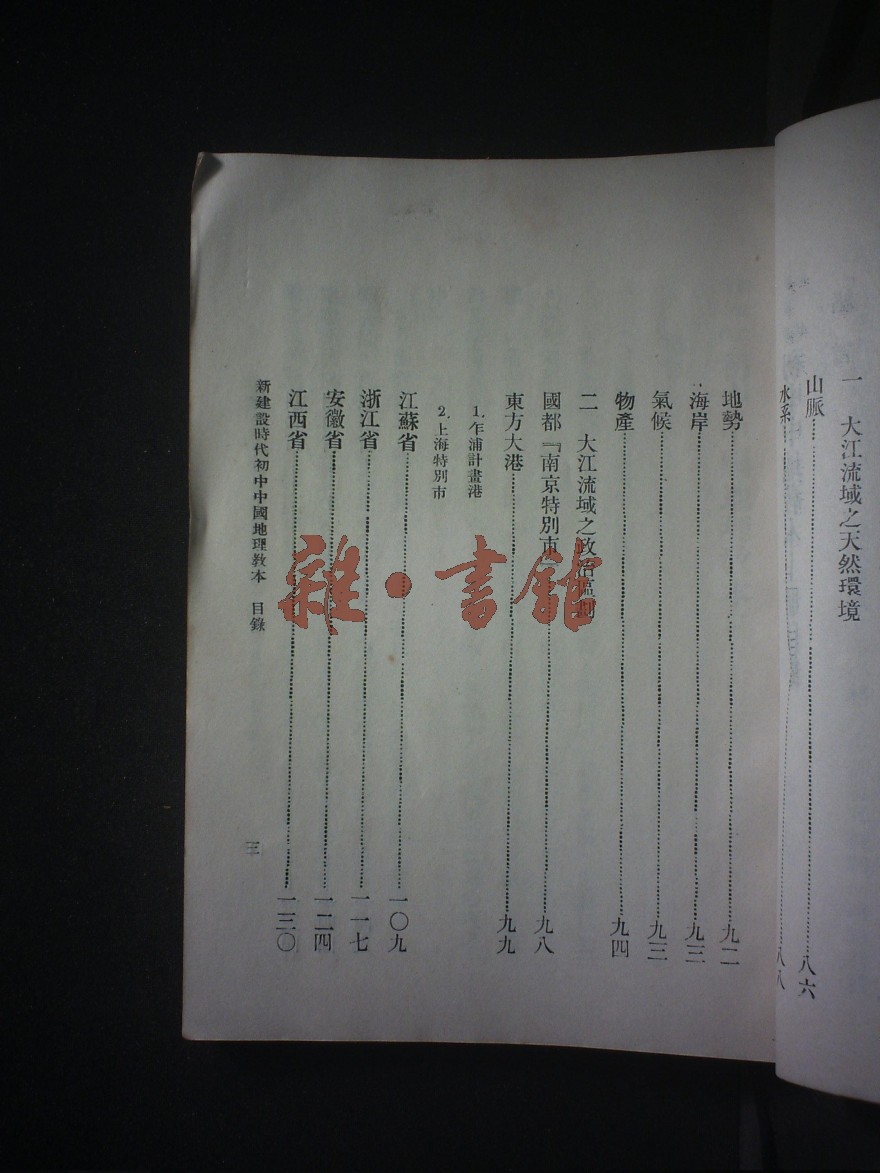 一　大江流域之天然環境
山脈……八六
水系……八八
地勢……九二
海岸……九三
氣候……九三
物產……九四
二　大江流域之政治區劃
國都『南京特別市』……九八
東方大港……九九
1. 乍浦計畫港
2. 上海特別市
江蘇省……一〇九
浙江省……一一七
安徽省……一二四
江西省……一三〇
新建設時代初中中國地理教本　目錄
三
雜·書館